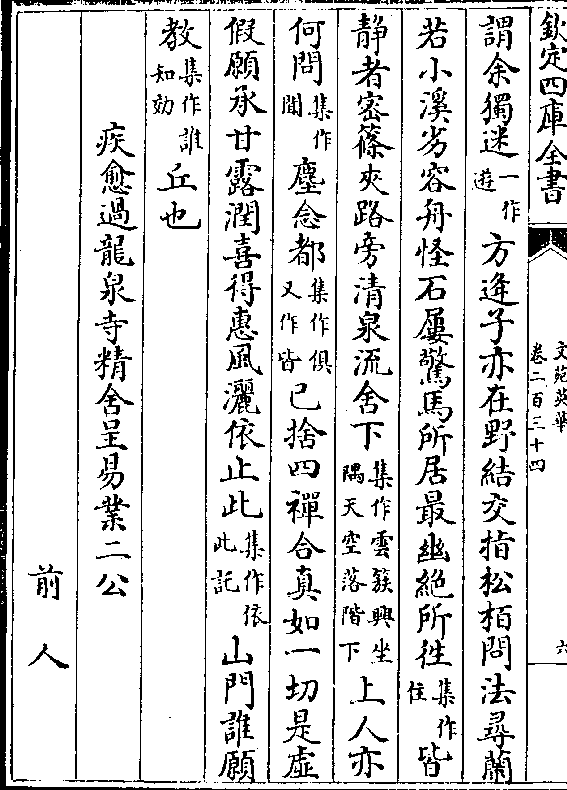 欽定四庫全書
文苑英華
卷二百三十四
六
謂余獨迷一作遊方逢子亦在野結交指松栢問法尋蘭
若小溪劣容舟怪石屢驚馬所居最幽絶所徃集作住皆
静者密篠夾路旁清泉流舍下集作雲簇興坐隅天空落階下上人亦
何問集作聞塵念都集作俱又作皆已捨四禪合真如一切是虛
假願承甘露潤喜得惠風灑依止此集作依此託山門誰願
教集作誰知効丘也
疾愈過龍泉寺精舍呈易業二公
前人